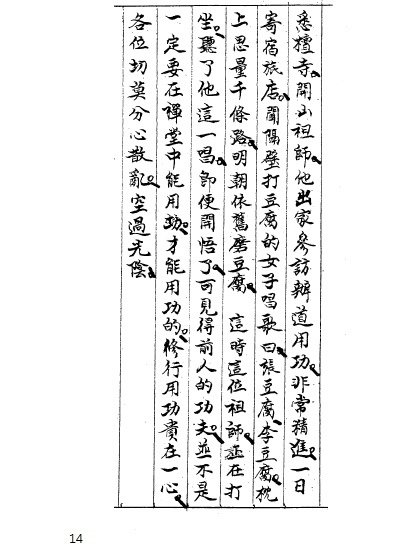 悉檀寺。開山祖師。他出家參訪辦道用功。非常精進。一日
寄宿旅店。聞隔壁打豆腐的女子唱歌曰。張豆腐、李豆腐。枕
上思量千條路。明朝依舊磨豆腐。這時這位祖師。正在打
坐。聽了他這一唱。即便開悟了。可見得前人的功夫。並不是
一定要在禪堂中能用功。才能用功的。修行用功貴在一心。
各位切莫分心散亂。空過光陰。
14